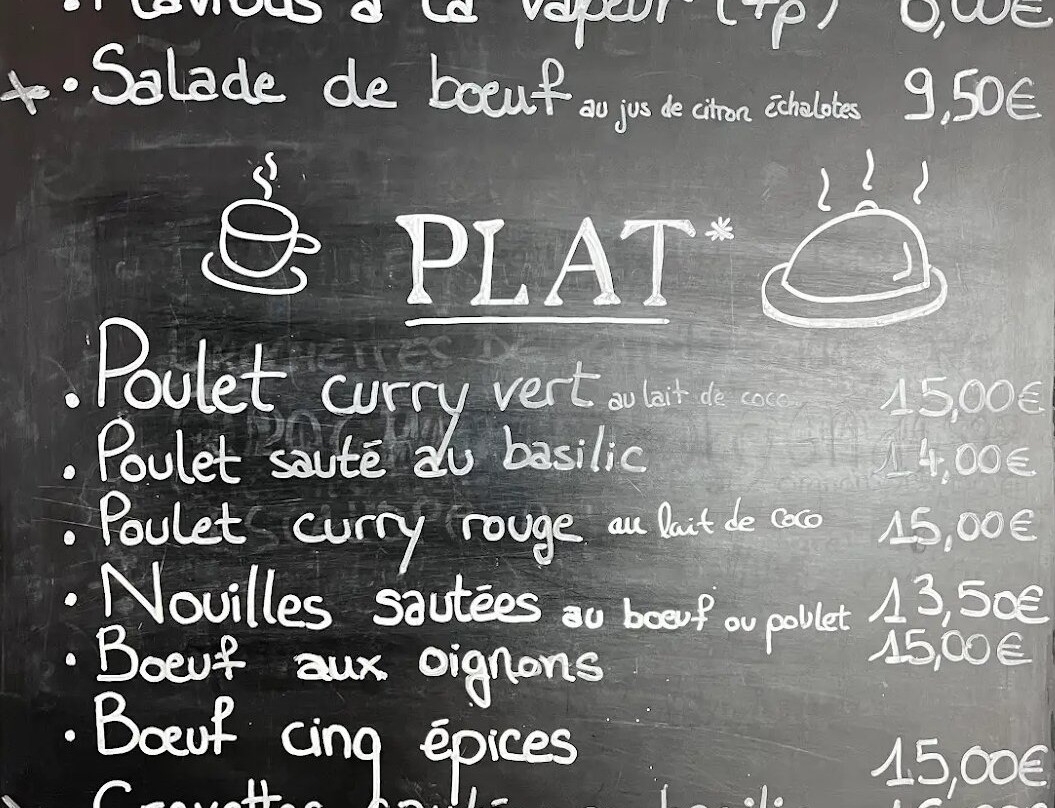 à la vapeur (4p) 6,00€
* • Salade de bœuf au jus de citron échalotes 9,50€
PLAT*
• Poulet curry vert au lait de coco 15,00€
• Poulet sauté au basilic 14,00€
• Poulet curry rouge au lait de coco 15,00€
• Nouilles sautées au bœuf ou poulet 13,50€
• Bœuf aux oignons 15,00€
• Bœuf cinq épices 15,00€